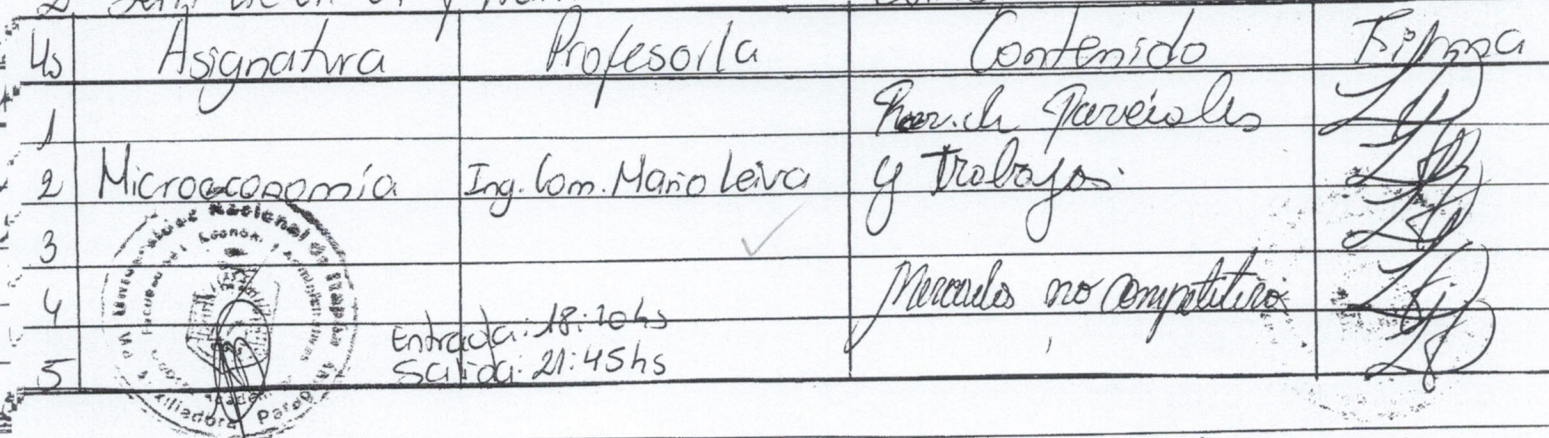 Hs Asignatura Profesor/a Contenido Firma
1 Parciales
2 Microeconomía Ing. Com. Mario Leiva y Trabajos.
3
4 Mercados no competitivos
Entrada: 18:10hs
5 Salida: 21:45hs
Universidad Nacional de Itapúa